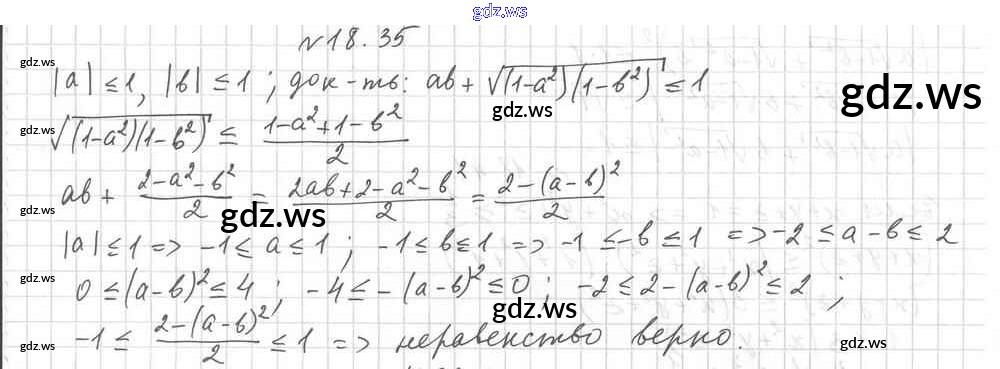 gdz.ws
№ 18.35
gdz.ws |a| ≤ 1, |b| ≤ 1 ; док-ть: ab + √((1-a²)(1-b²)) ≤ 1 gdz.ws
gdz.ws gdz.ws
gdz.ws √((1-a²)(1-b²)) ≤ (1-a²+1-b²)/2
ab + (2-a²-b²)/2 = (2ab+2-a²-b²)/2 = (2-(a-b)²)/2
gdz.ws gdz.ws gdz.ws
|a| ≤ 1 => -1 ≤ a ≤ 1 ; -1 ≤ b ≤ 1 => -1 ≤ -b ≤ 1 => -2 ≤ a-b ≤ 2
gdz.ws 0 ≤ (a-b)² ≤ 4 ; -4 ≤ -(a-b)² ≤ 0 ; -2 ≤ 2-(a-b)² ≤ 2 ;
gdz.ws
gdz.ws -1 ≤ (2-(a-b)²)/2 ≤ 1 => неравенство верно. gdz.ws